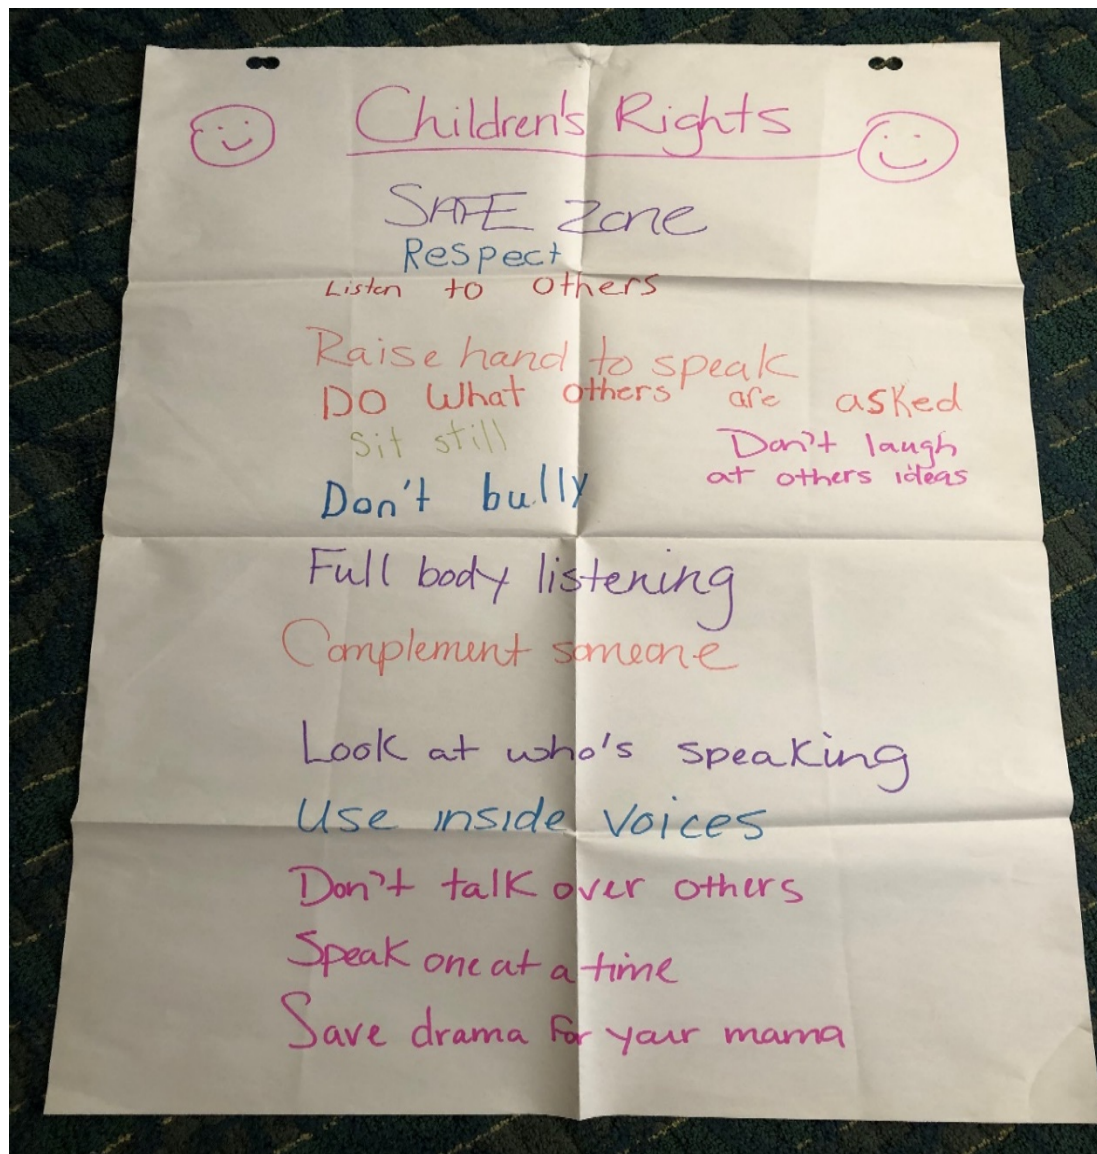 Children's Rights
SAFE Zone
Respect
Listen to others
Raise hand to speak
DO What others are asked
Sit still
Don't laugh
at others ideas
Don't bully
Full body listening
Complement someone
Look at who's speaking
Use inside voices
Don't talk over others
Speak one at a time
Save drama for your mama